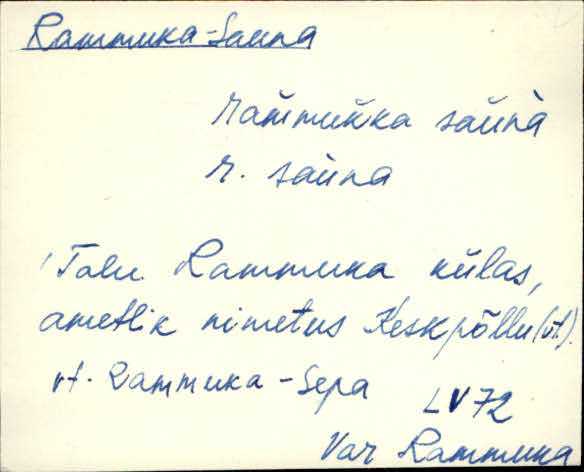 Rammuka-Sauna
ram̆muk̆ka saŭnà
r. saŭna
Talu Rammuka külas,
ametlik nimetus Keskpõllu (vt.).
vt. Rammuka-Sepa LV 72
Var Rammuka